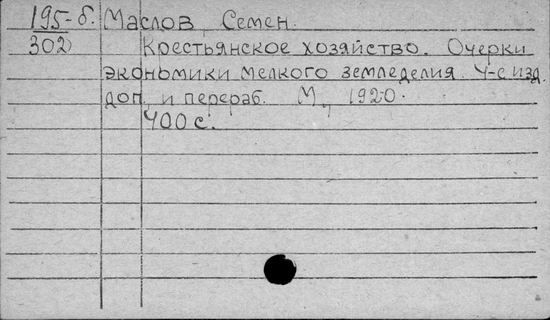 195-б. Маслов, Семен.
302 Крестьянское хозяйство. Очерки
экономики мелкого земледелия. 4-е изд.
доп. и перераб. М., 1920.
400 с.